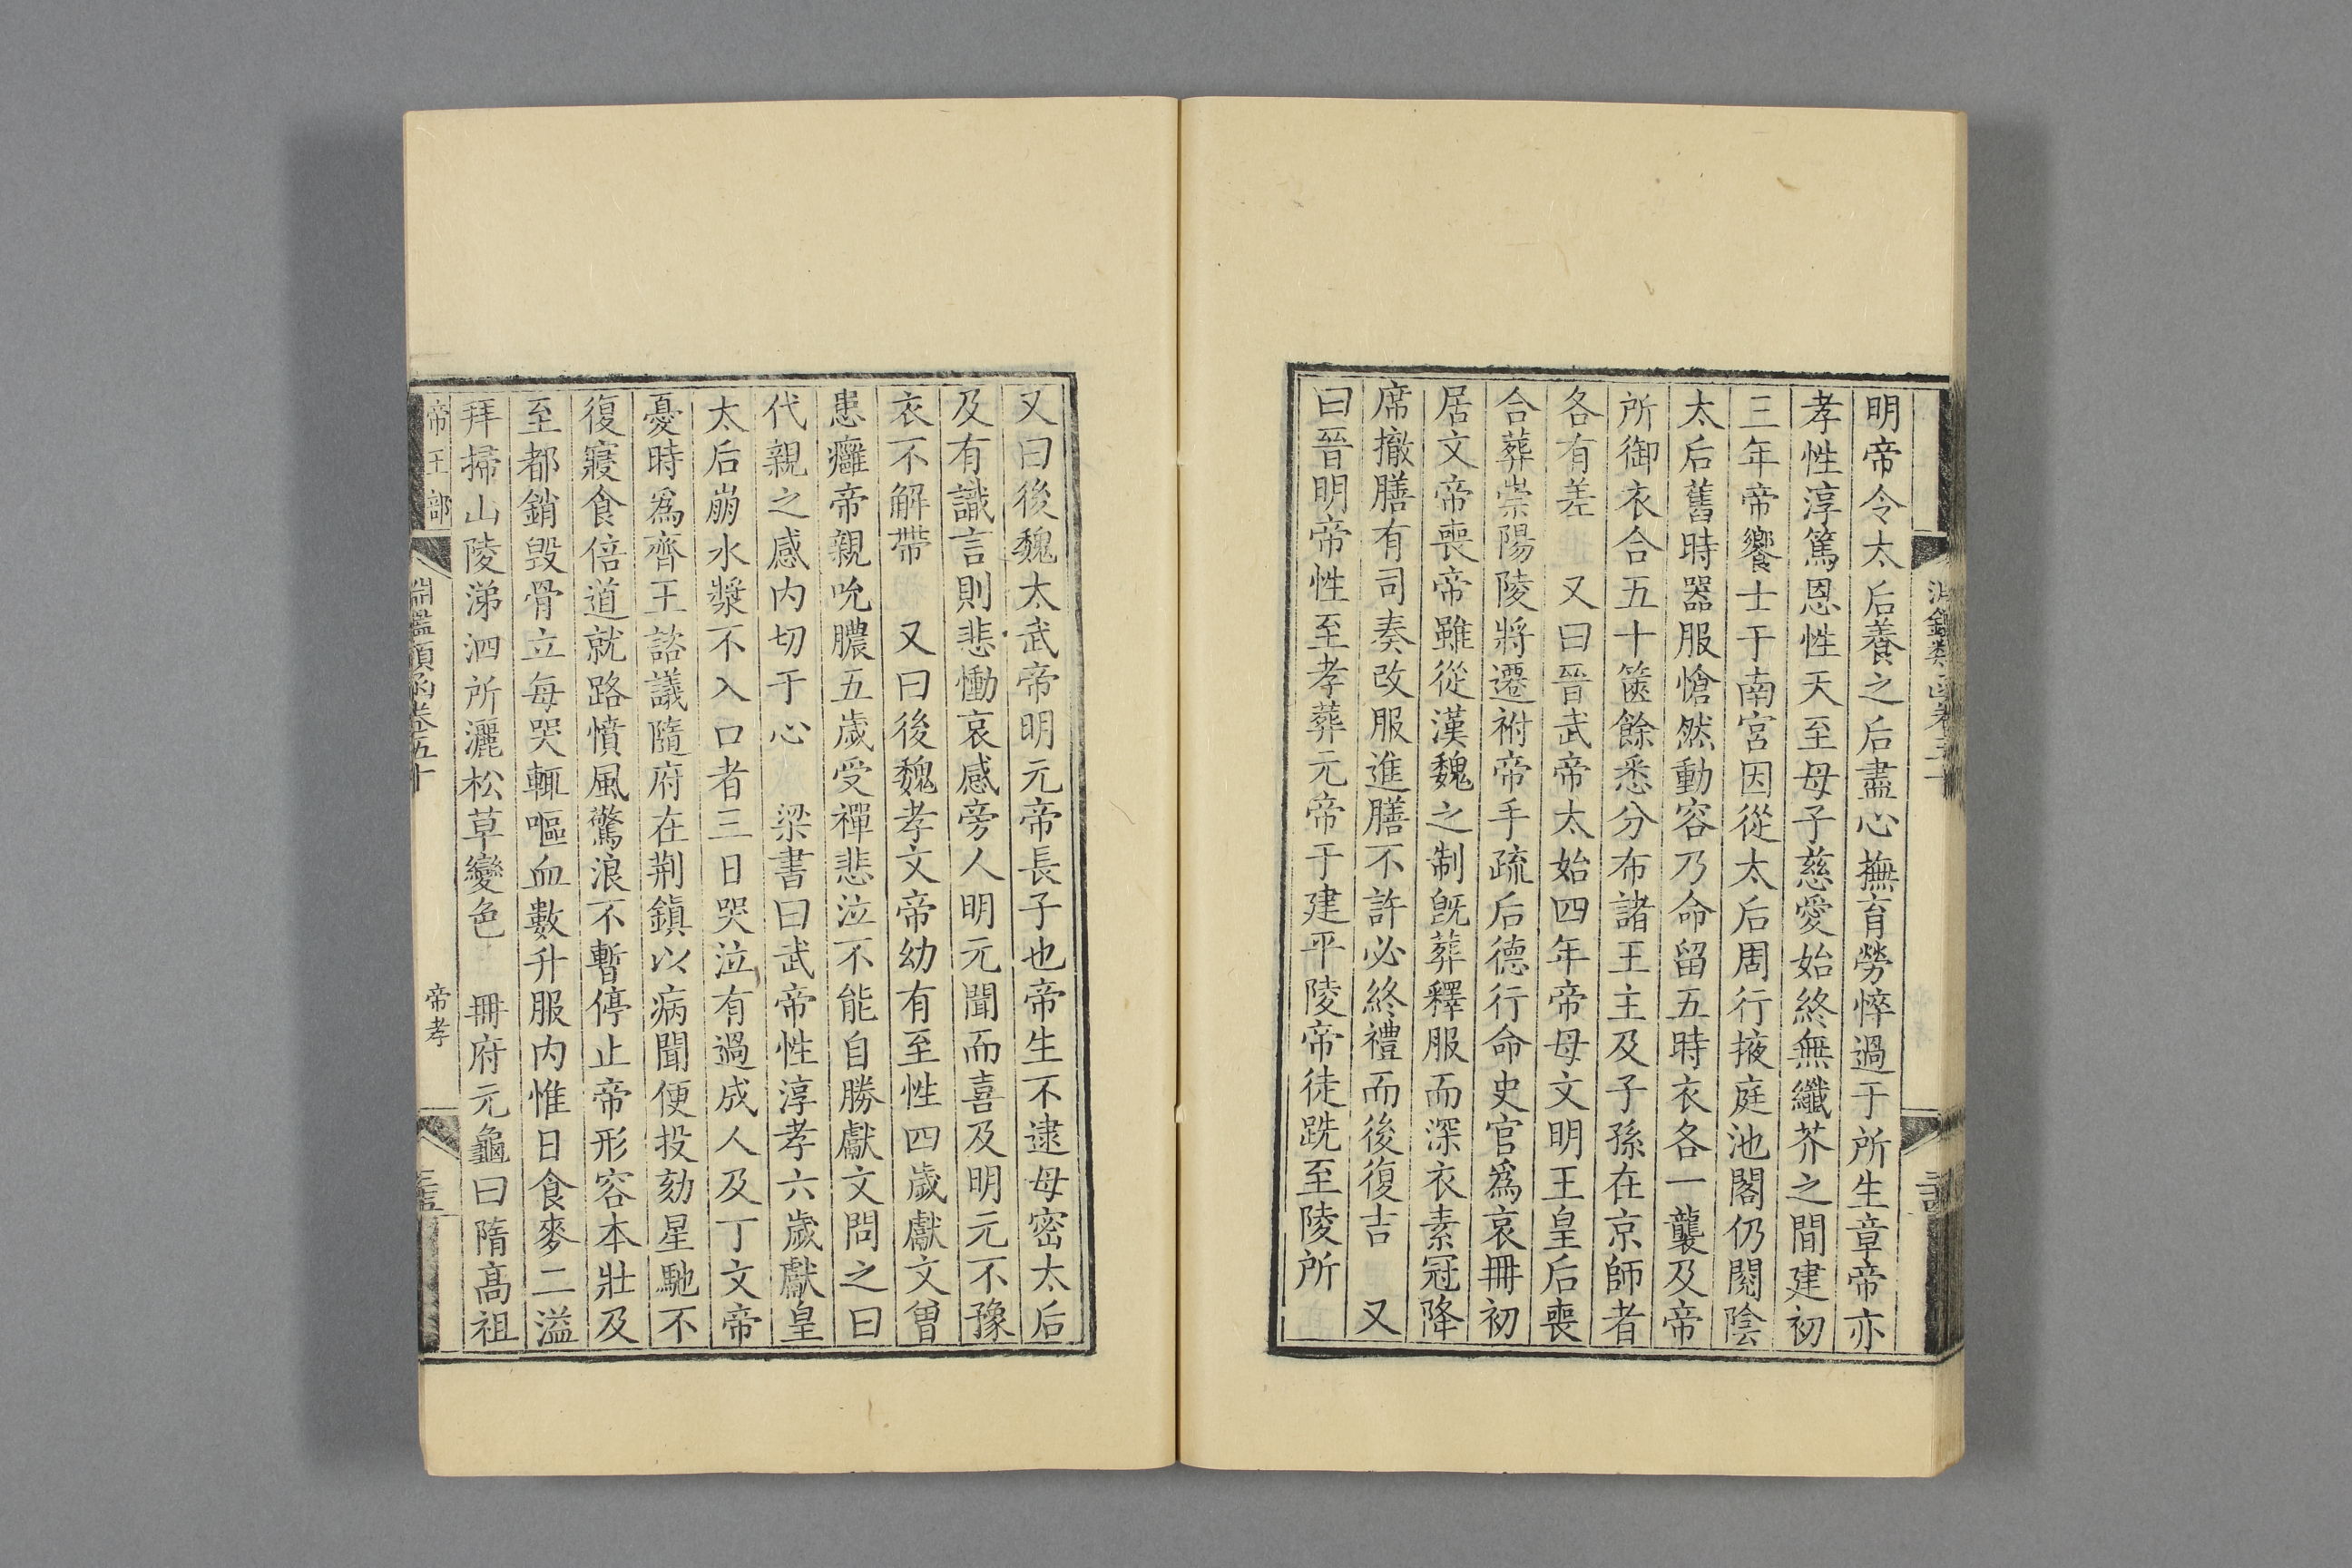 明帝令太后養之后盡心撫育勞悴過于所生章帝亦
孝性淳篤恩性天至母子慈愛始終無纖芥之間建初
三年帝饗士于南宮因從太后周行掖庭池閣仍閱陰
太后舊時器服愴然動容乃命留五時衣各一襲及帝
所御衣合五十篋餘悉分布諸王主及子孫在京師者
各有差　又曰晉武帝太始四年帝母文明王皇后喪
合葬崇陽陵將遷祔帝手疏后德行命史官爲哀冊初
居文帝喪帝雖從漢魏之制旣葬釋服而深衣素冠降
席撤膳有司奏改服進膳不許必終禮而後復吉　又
曰晉明帝性至孝葬元帝于建平陵帝徒跣至陵所
又曰後魏太武帝明元帝長子也帝生不逮母密太后
及有識言則悲慟哀感旁人明元聞而喜及明元不豫
衣不解帶　又曰後魏孝文帝幼有至性四歲獻文曾
患癰帝親吮膿五歲受禪悲泣不能自勝獻文問之曰
代親之感内切于心　梁書曰武帝性淳孝六歲獻皇
太后崩水漿不入口者三日哭泣有過成人及丁文帝
憂時爲齊王諮議隨府在荆鎮以病聞便投劾星馳不
復寢食倍道就路憤風驚浪不暫停止帝形容本壯及
至都銷毁骨立每哭輒嘔血數升服内惟日食麥二溢
拜掃山陵涕泗所灑松草變色　冊府元龜曰隋高祖
帝王部
淵鑑類函卷五十
帝孝